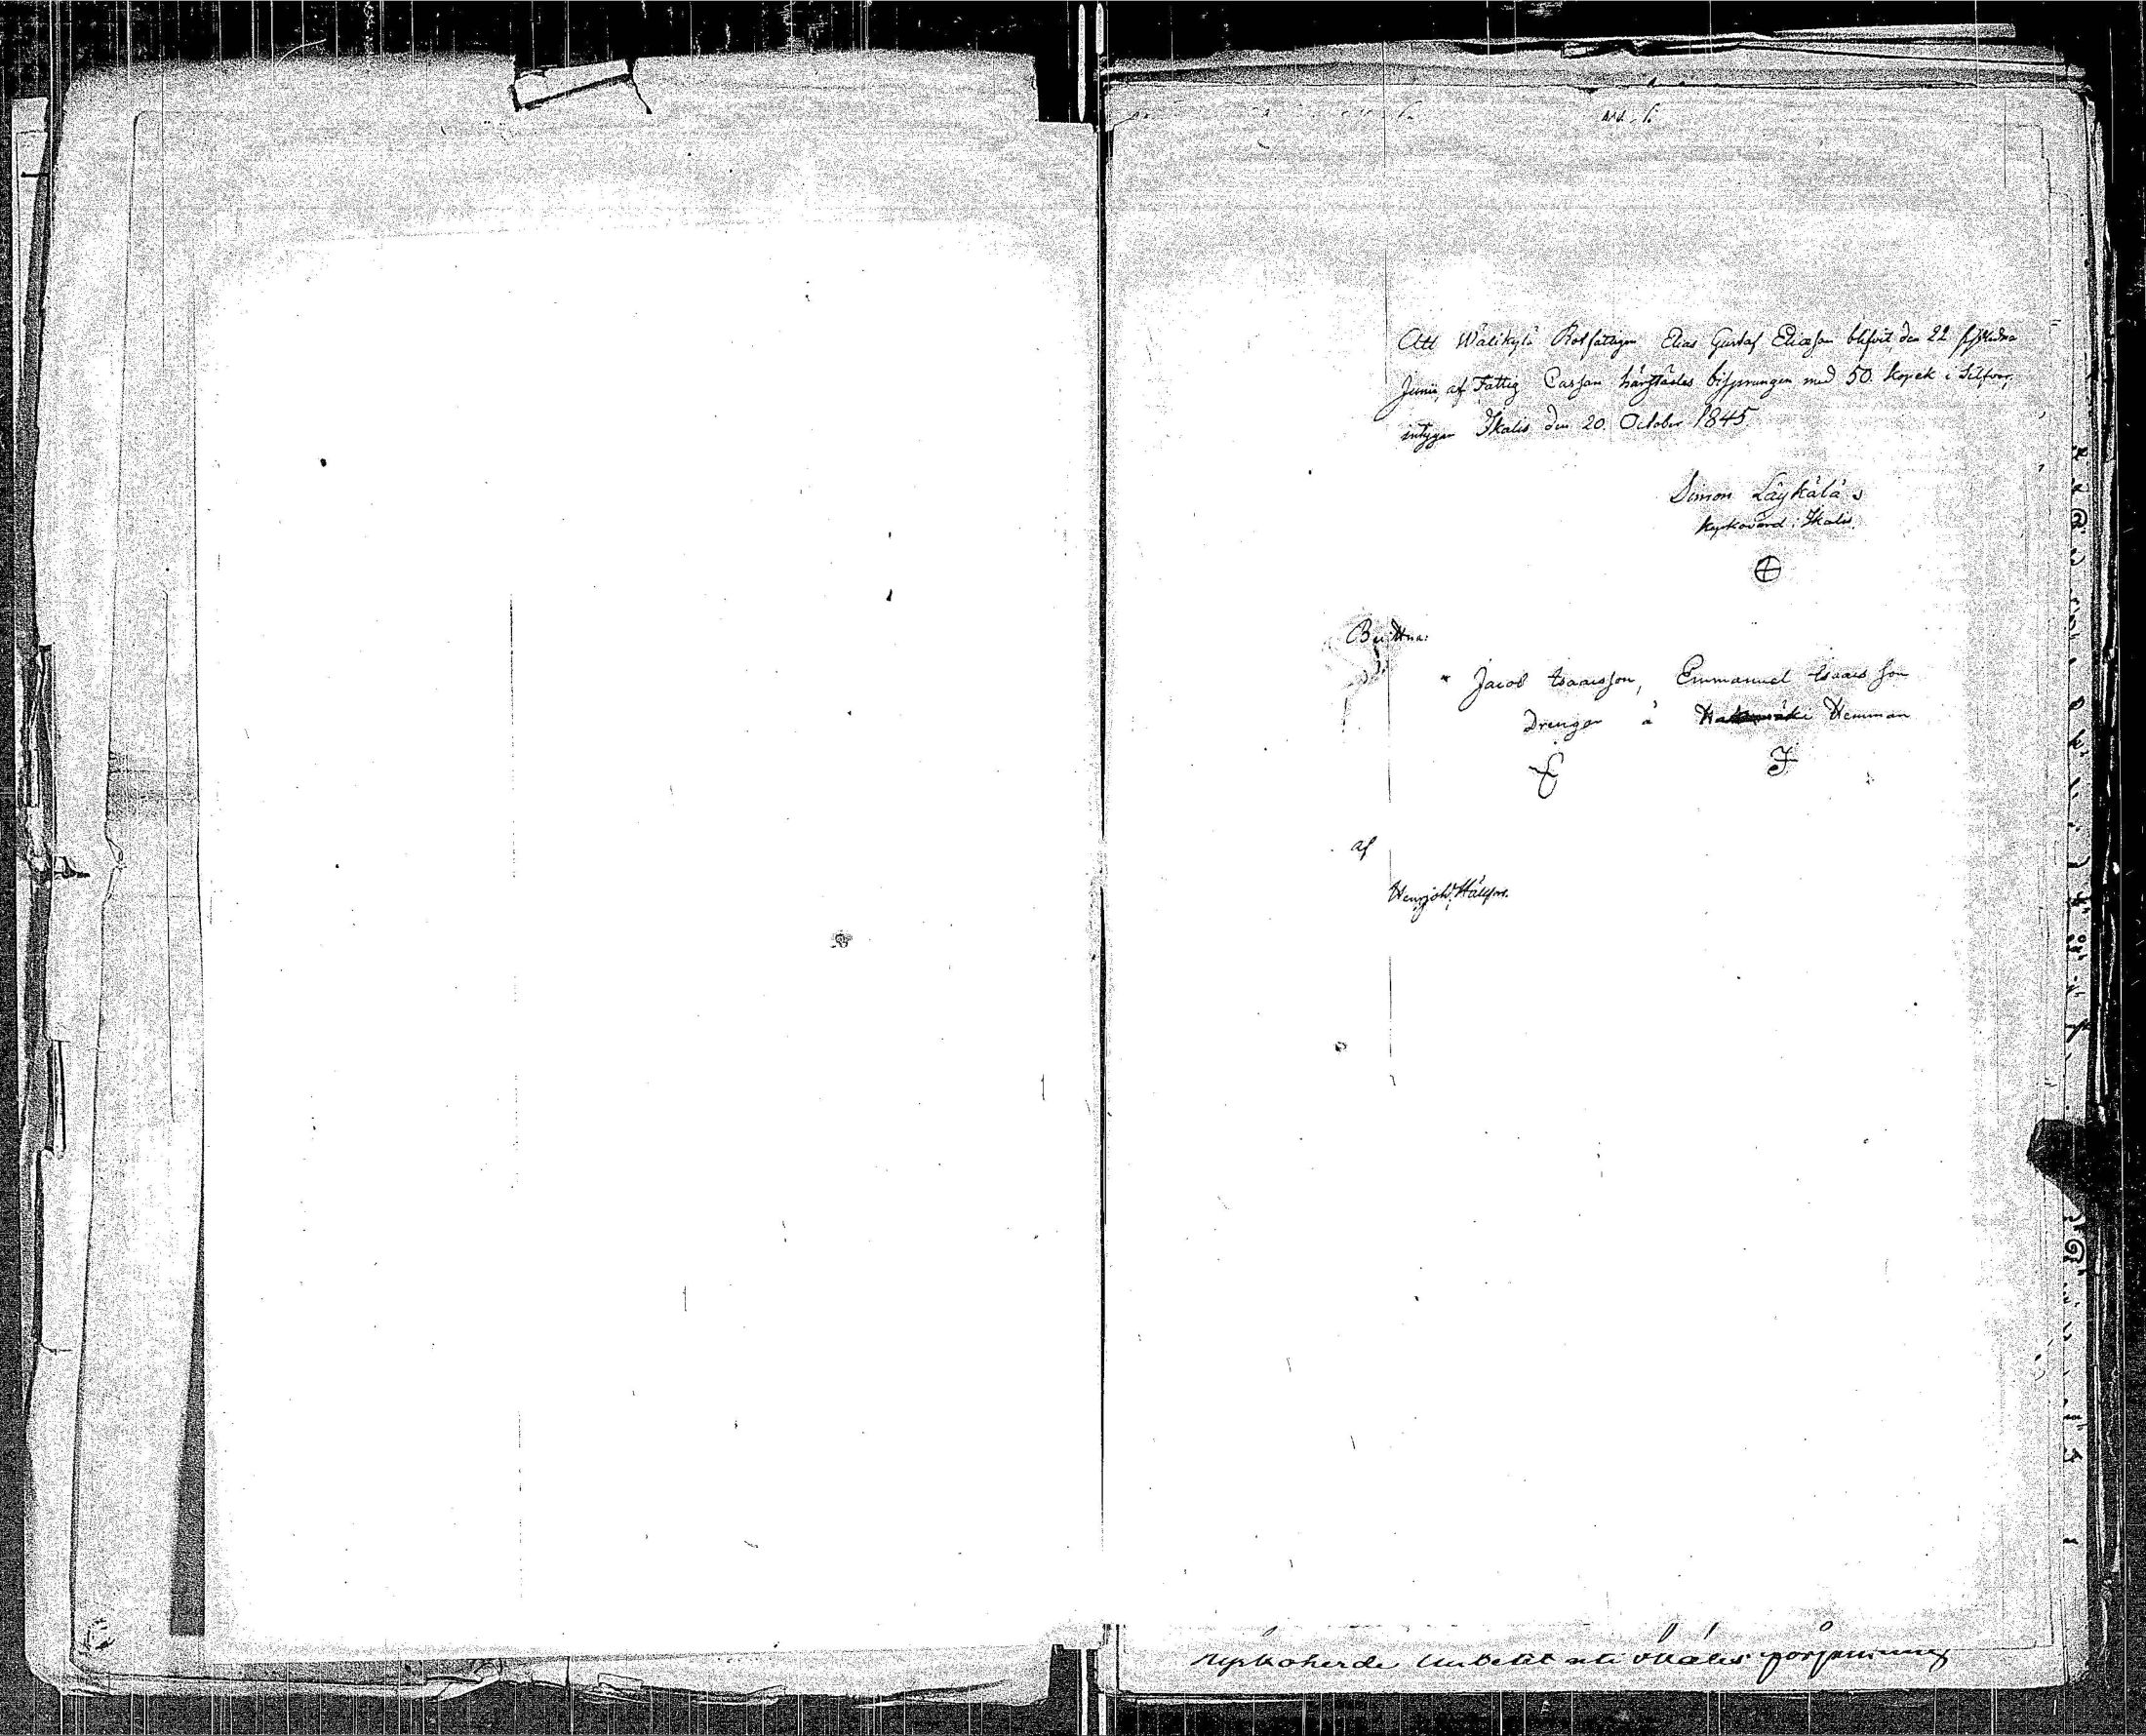 Att Wälikylä Rotfattigen Elias Gustaf Eliæson blifvit den 22 sistledna
Junii af Fattig Cassan härstädes bisprungen med 50 Kopek i Silfver,
intygar Ikalis den 20 October 1845.
Simon Läykälä
Kyrkovärd i Ikalis.
Bevittna:
Jacob Isaacsson, Emmanuel Isaacsson
Drengar å Hemman
af
Kyrkoherde Embetet uti Ikalis församling